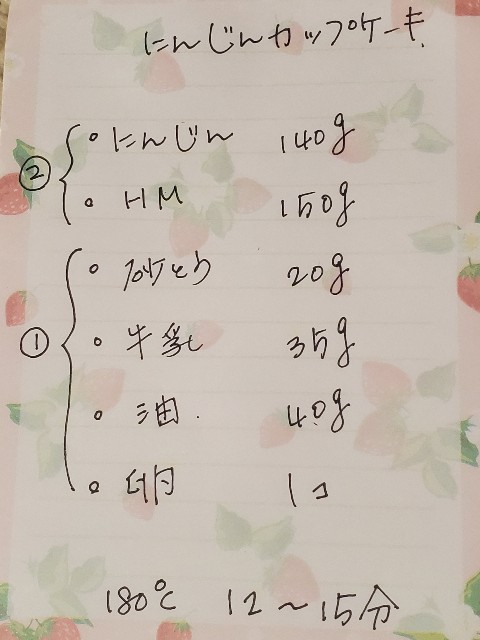 にんじんカップケーキ
② { ・にんじん 140g
・HM 150g
① { ・砂とう 20g
・牛乳 35g
・油. 40g
・卵 1コ
180℃ 12～15分